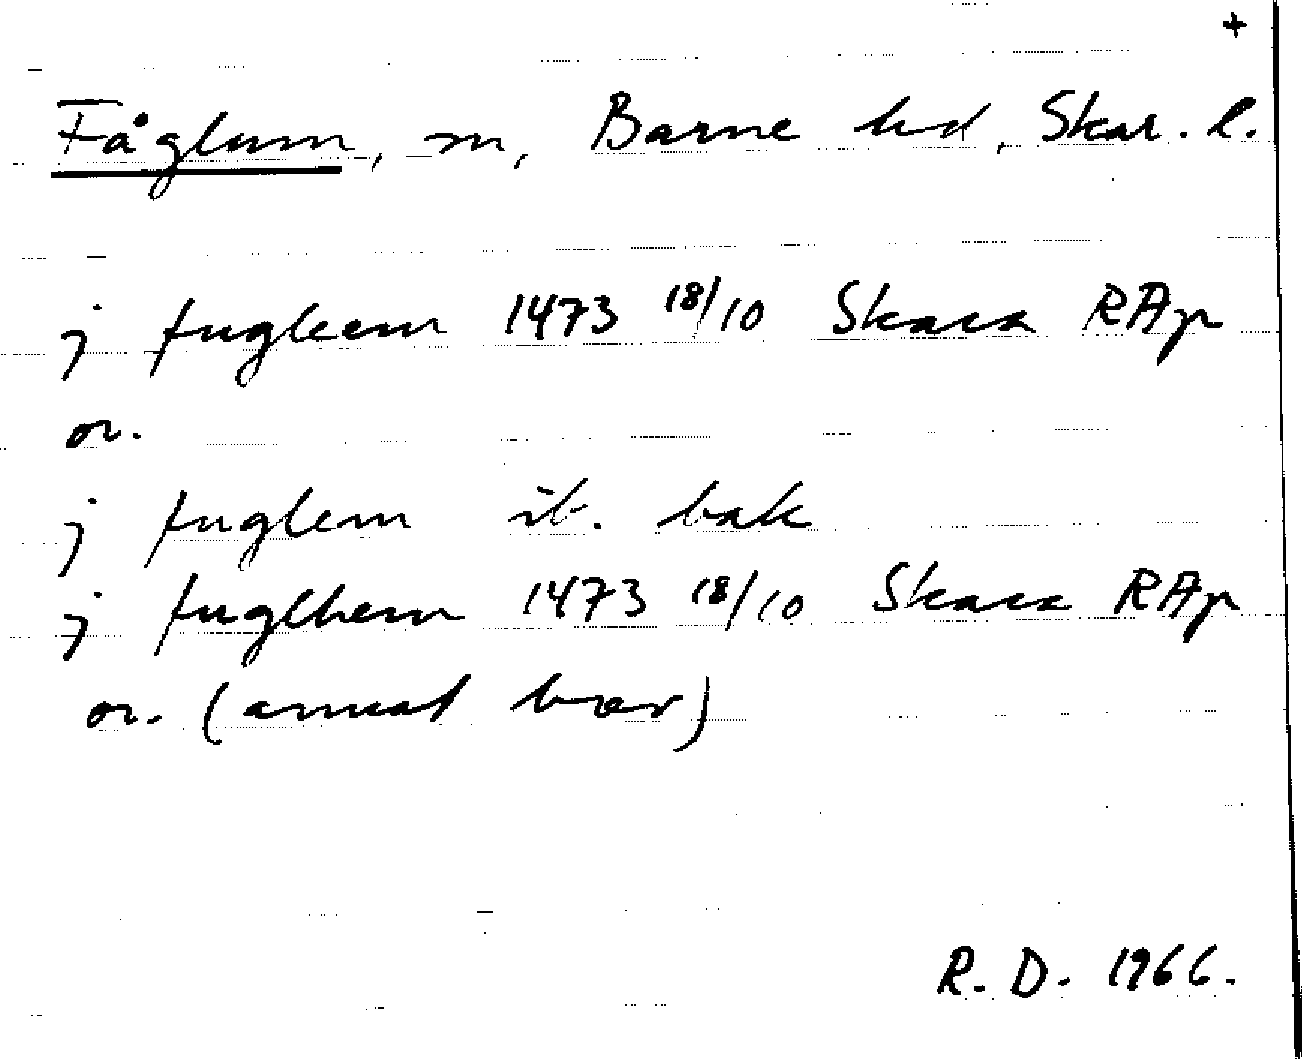 +
Fåglum, sn, Barne hd, Skar. l.
j fugleem 1473 18/10 Skara RAp
or.
j fuglem ib. bak
j fuglhem 1473 18/10 Skara RAp
or. (annat brev)
R. D. 1966.